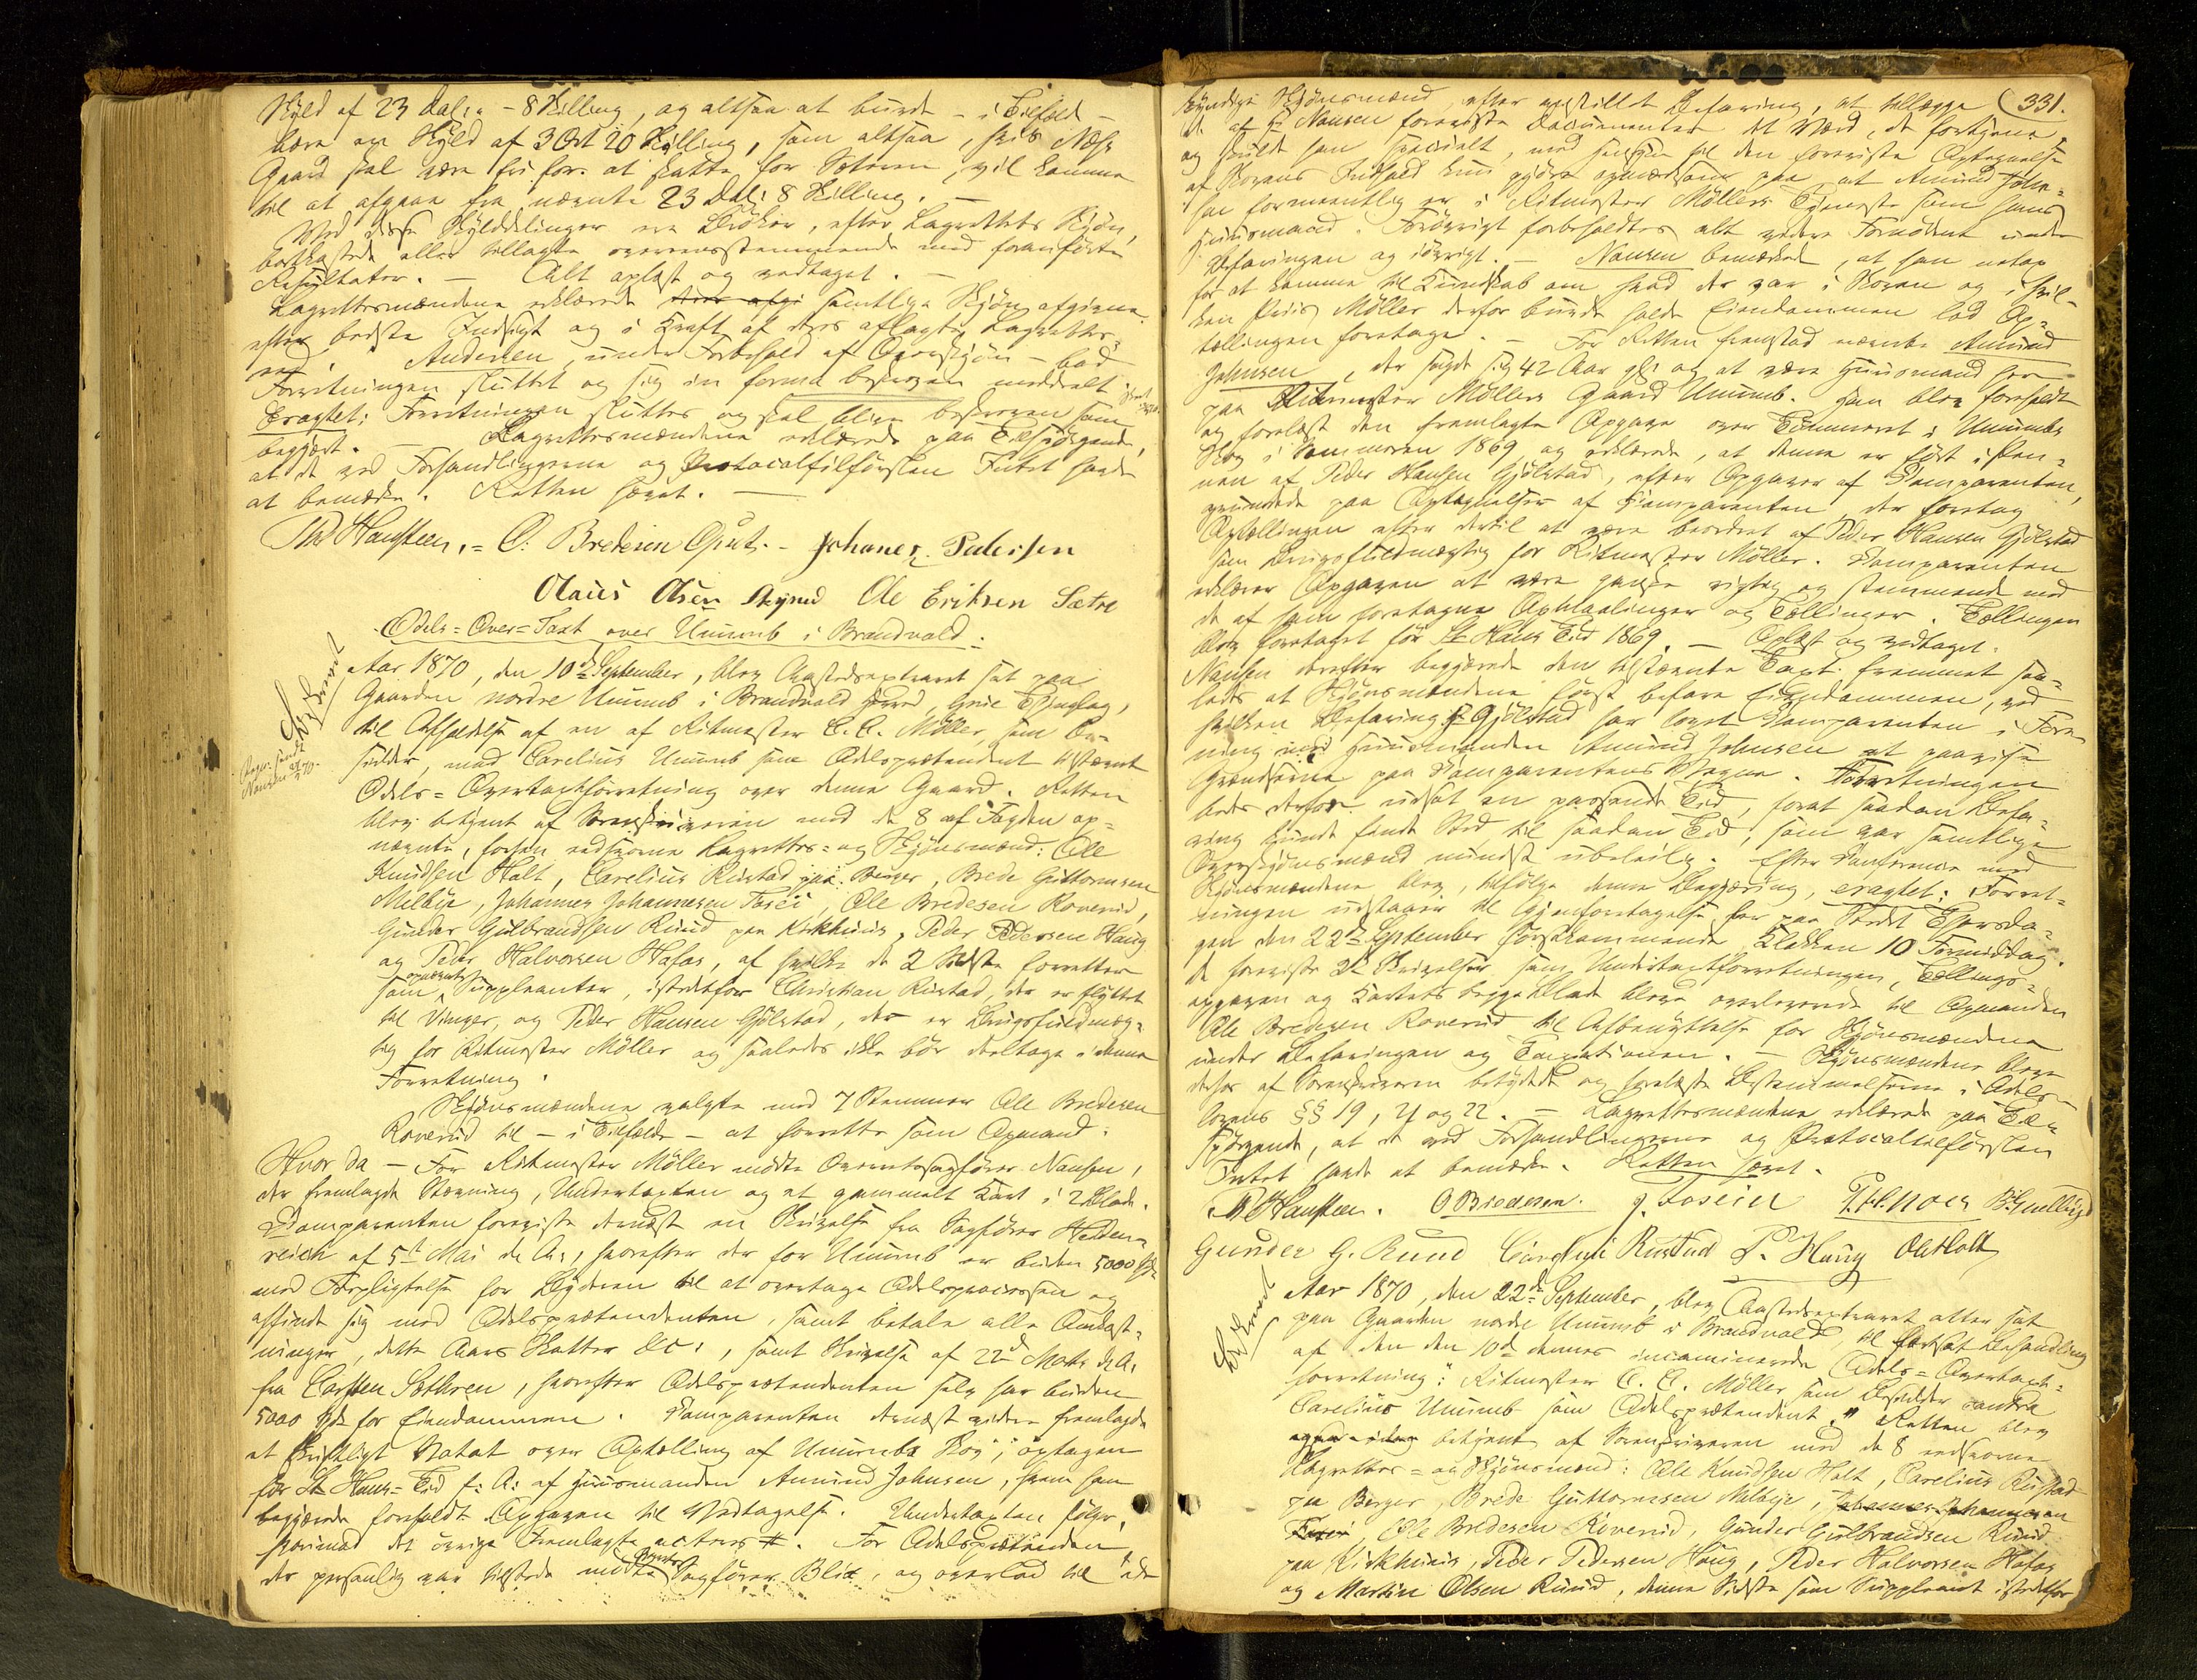 Skyld af 23 Dal: - 8 Skilling, og altsaa at burde - i Tilfæld -
bære en Skyld af 3 Ort 20 Skilling, som altsaa, hvis Næss
Gaard skal være fri for at skatte for Sæteren, vil komme
til at afgaae fra nævnte 23 Dal: 8 Skilling. -
Ved disse Skylddelinger ere Brøker, efter Lagrettets Skjøn,
bortkastede eller tillagte overensstemmende med foranførte
Resultater. - Alt oplæst og vedtaget. -
Lagrettesmændene erklærede samtlige Skjøn afgivne
efter bedste Indsigt og i Kraft af deres aflagte Lagrettes-
ed. Andersen, under Forbehold af Overskjøn - bad
Forretningen sluttet og sig in forma beskreven meddeelt.
Eragtet: Forretningen sluttes og skal blive beskreven som
begjært. - Lagrettesmændene erklærede paa Tilspørgende,
at de ved Forhandlingerne og Protocoltilførslen Intet havde
at bemærke. Retten hævet. -
Th Hansteen. = O: Bredesen Opset. - Johanes Pedersen
Olaus Olsen Ole Eriksen Sætre
Odels-Over-Taxt over Uumb i Brandvold.
Aar 1870, den 10de September, blev Aastedsextraret sat paa
Gaarden nordre Uumb i Brandvold Sogn, Grue Thinglag,
til Afholdelse af en af Ritmester C. C. Möller, som Be-
sidder, mod Carelius Uumb som Odelsprætendent
Odels-Overtaxtforretning over denne Gaard. Retten
blev betjent af Sorenskriveren med de 8 af Fogden op-
nævnte, forhen edsvorne Lagrettes- og Skjönsmænd: Ole
Knudsen Holt, Carelius Rustad paa Berger, Brede Guttormsen
Melbye, Johannes Johannesen Fosei, Ole Bredesen Roverud,
Gunder Gulbrandsen Ruud paa Kirkhuus, Peder Pedersen Haug
og Peder Halvorsen Hafas, af hvilke de 2 Sidste forretter
som opnævnte Suppleanter, istedetfor Christian Rustad, der er flyttet
til Vinger, og Peder Hansen Gjölstad, der er Brugsfuldmæg-
tig for Ritmester Möller og saaledes ikke bör deeltage i denne
Forretning.
Skjönsmændene valgte med 7 Stemmer Ole Bredesen
Roverud til - i Tilfælde - at forrette som Opmand.
Hvor da - For Ritmester Möller mödte Overretssagfører Nansen,
der fremlagde Stævning, Undertaxten og et gammelt Kart i 2 Blade.
Comparenten foreviste dernæst en Skrivelse fra Sagfører Heiden-
reich af 5te Mai d. A:, hvorefter der for Uumb er buden 5000 Spd
med Forpligtelse for Byderen til at overtage Odelsprocessen og
affinde sig med Odelsprætendenten, samt betale alle Omkost-
ninger, dette Aars Skatter &c:, samt Skrivelse af 22de Marts d. A:
fra Carsten Sothren, hvorefter Odelsprætendenten selv har buden
5000 Spd for Eiendommen. Comparenten dernæst videre fremlagde
et skriftligt Notat over Optælling af Uumbs Skov, optagen
för St. Hans-Tid f: A: af Huusmanden Amund Johnsen, hvem han
begjærede foreholdt Opgaven til Vedtagelse. Undertaxten følger,
hvorimod det øvrige Fremlagte acteres #. For Odelsprætendenten,
der personlig var tilstede mødte Sagfører Blix, og overlod til de
331.
kyndige Skjönsmænd, efter anstillet Befaring, at tillægge
de af Hr Nansen foreviste Documenter det Værd, de fortjene,
og skulde han specielt, med Hensyn til den foreviste Optegnelse
af Skovens Indhold kun gjöre opmærksom paa at Amund John-
sen formeentlig er i Ritmester Möllers Tjeneste som hans
Huusmand. Forövrigt forbeholdtes alt videre Fornødent under
Befaringen og iövrigt. - Nansen bemærkede, at han netop
for at komme til Kundskab om hvad der var i Skoven og i hvil-
ken Priis Möller derfor burde holde Eiendommen lod Op-
tællingen foretage. - For Retten fremstod nævnte Amund
Johnsen, der sagde sig 42 Aar gl: og at være Huusmand her
paa Ritmester Möllers Gaard Uumb. Han blev foreholdt
og forelæst den fremlagte Opgave over Tömmeret i Uumbs
Skog i Sommeren 1869 og erklærede, at denne er fört i Pen-
nen af Peder Hansen Gjölstad, efter Opgaver af Comparenten,
grundede paa Optegnelser af Comparenten der foretog
Optællingen efter dertil at være beordret af Peder Hansen Gjölstad
som Brugsfuldmægtig for Ritmester Möller. Comparenten
erklærer Opgaven at være ganske rigtig og stemmende med
de af ham foretagne Opmaalinger og Tællinger. Tællingen
blev foretaget för St. Hans Tid 1869. - Oplæst og vedtaget.
Nansen derefter begjærede den bestemte Taxt fremmet saa-
ledes at Skjönsmændene först befare Eiendommen, ved
hvilken Befaring Hr Gjölstad har lovet Comparenten i Fore-
ning med Huusmanden Amund Johnsen at paavise
Grændserne paa Comparentens Vegne. Forretningen
bedes derfor udsat en passende Tid, forat saadan Befa-
ring kunde finde Sted til saadan Tid, som var samtlige
Overskjönsmænd mindst ubeleilig. Efter Conference med
Skjönsmændene blev, tilfölge denne Begjæring, eragtet: Forret-
ningen udstaaer til Gjenforetagelse her paa Stedet Thorsda-
gen den 22de September förstkommende Klokken 10 Formiddag.
De foreviste 2de Skrivelser, samt Undertaxtforretningen, Tællings-
opgaven og Kartets begge Blade bleve overleverede til Opmanden
Ole Bredesen Roverud til Afbenyttelse for Skjönsmændene
under Befaringen og Taxationen. - Skjönsmændene bleve
derhos af Sorenskriveren betydede og forelæste Bestemmelserne i Odels-
lovens §§ 19, 21 og 22. - Lagrettesmændene erklærede paa Til-
spørgende, at de ved Forhandlingerne og Protocoltilförslen
Intet havde at bemærke. Retten hævet.
Th Hansteen. O Bredesen. J. Foseid P. H. Moen B: G melbye
Gunder G. Ruud Carelius Rustad P. Haug Ole Holt
Aar 1870, den 22de September, blev Aastedsextraret atter sat
paa Gaarden nordre Uumb i Brandvold, til fortsat Behandling
af den den 10de dennes incaminerede Odels-Overtaxt-
forretning: Ritmester C. C. Möller som Besidder contra
Carelius Uumb som Odelsprætendent." Retten blev
betjent af Sorenskriveren med de 8 edsvorne
Lagrettes- og Skjönsmænd: Ole Knudsen Holt, Carelius Rustad
paa Berger, Brede Guttormsen Melbye, Johannes Johannesen
Fosei, Ole Bredesen Roverud, Gunder Gulbrandsen Ruud
paa Kirkhuus, Peder Pedersen Haug, Peder Halvorsen Hafas
og Martin Olsen Ruud, denne Sidste som Suppleant istedetfor